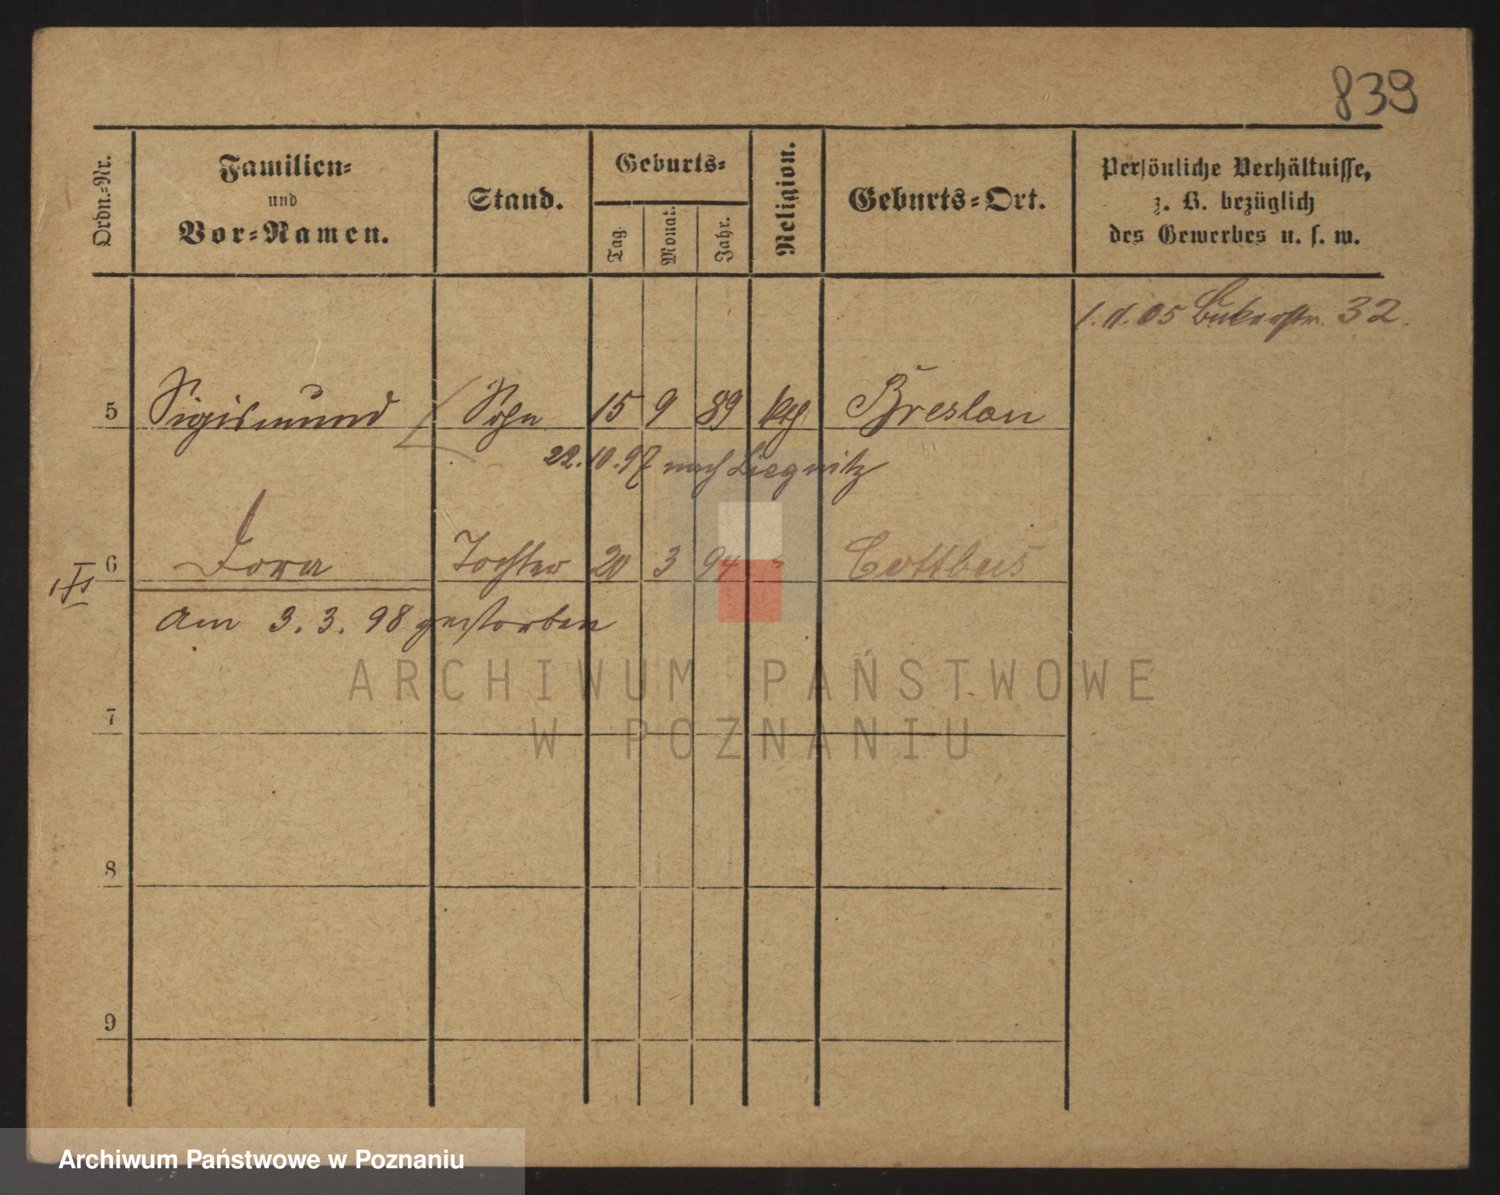 839
Ordn.-Nr. Familien- und Vor-Namen. Stand. Geburts- Tag. Monat. Jahr. Religion. Geburts-Ort. Persönliche Verhältnisse, z. B. bezüglich des Gewerbes u. s. w.
1.11.05 Bukerstr. 32.
5 Sigismund Sohn 15 9 89 Breslau
22.10.97 nach Liegnitz
6 Dora Tochter 20 3 94 " Cottbus
am 3.3.98 gestorben
ARCHIWUM PAŃSTWOWE
W POZNANIU
7
8
9
Archiwum Państwowe w Poznaniu